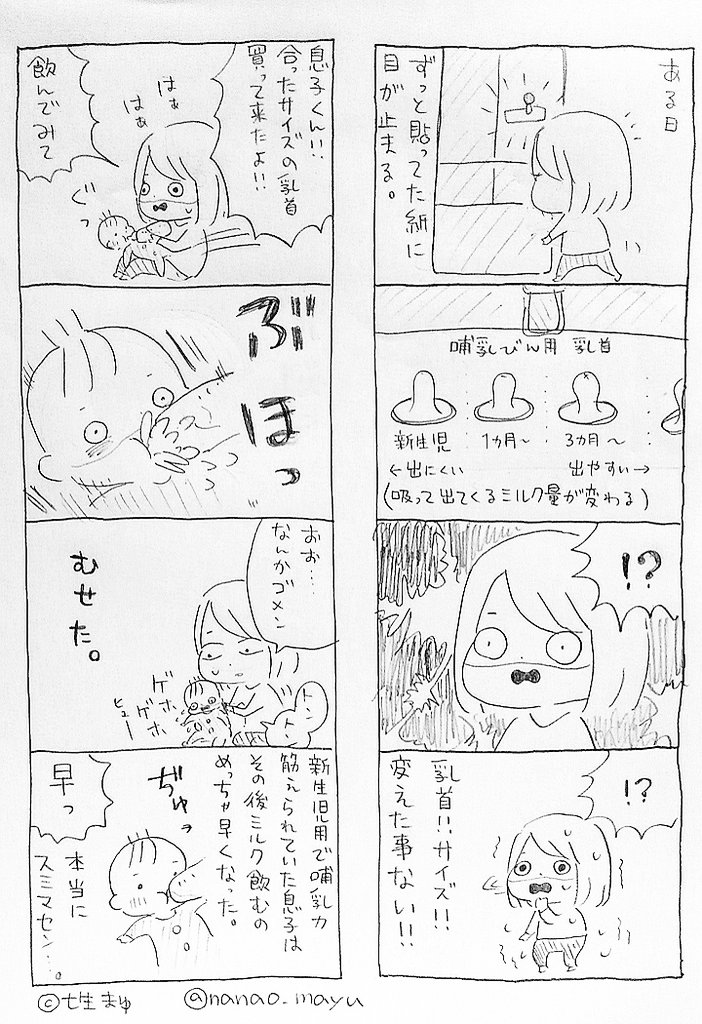 ある日
ずっと貼ってた紙に
目が止まる。
哺乳びん用 乳首
新生児
1カ月〜
3カ月〜
←出にくい
出やすい→
(吸って出てくるミルク量が変わる)
!?
!?
乳首!!サイズ!!
変えた事ない!!
息子くん!!
合ったサイズの乳首
買って来たよ!!
はぁ
はぁ
飲んでみて
ぐっ
ぶ
ほっ
おぉ…
なんかゴメン
むせた。
トントン
ゲホ
ゲホ
ヒュー
新生児用で哺乳力
筋えられていた息子は
その後ミルク飲むの
めっちゃ早くなった。
ぢゅっ
早っ
本当に
スミマセン…。
©七生まゆ
@nanao_mayu